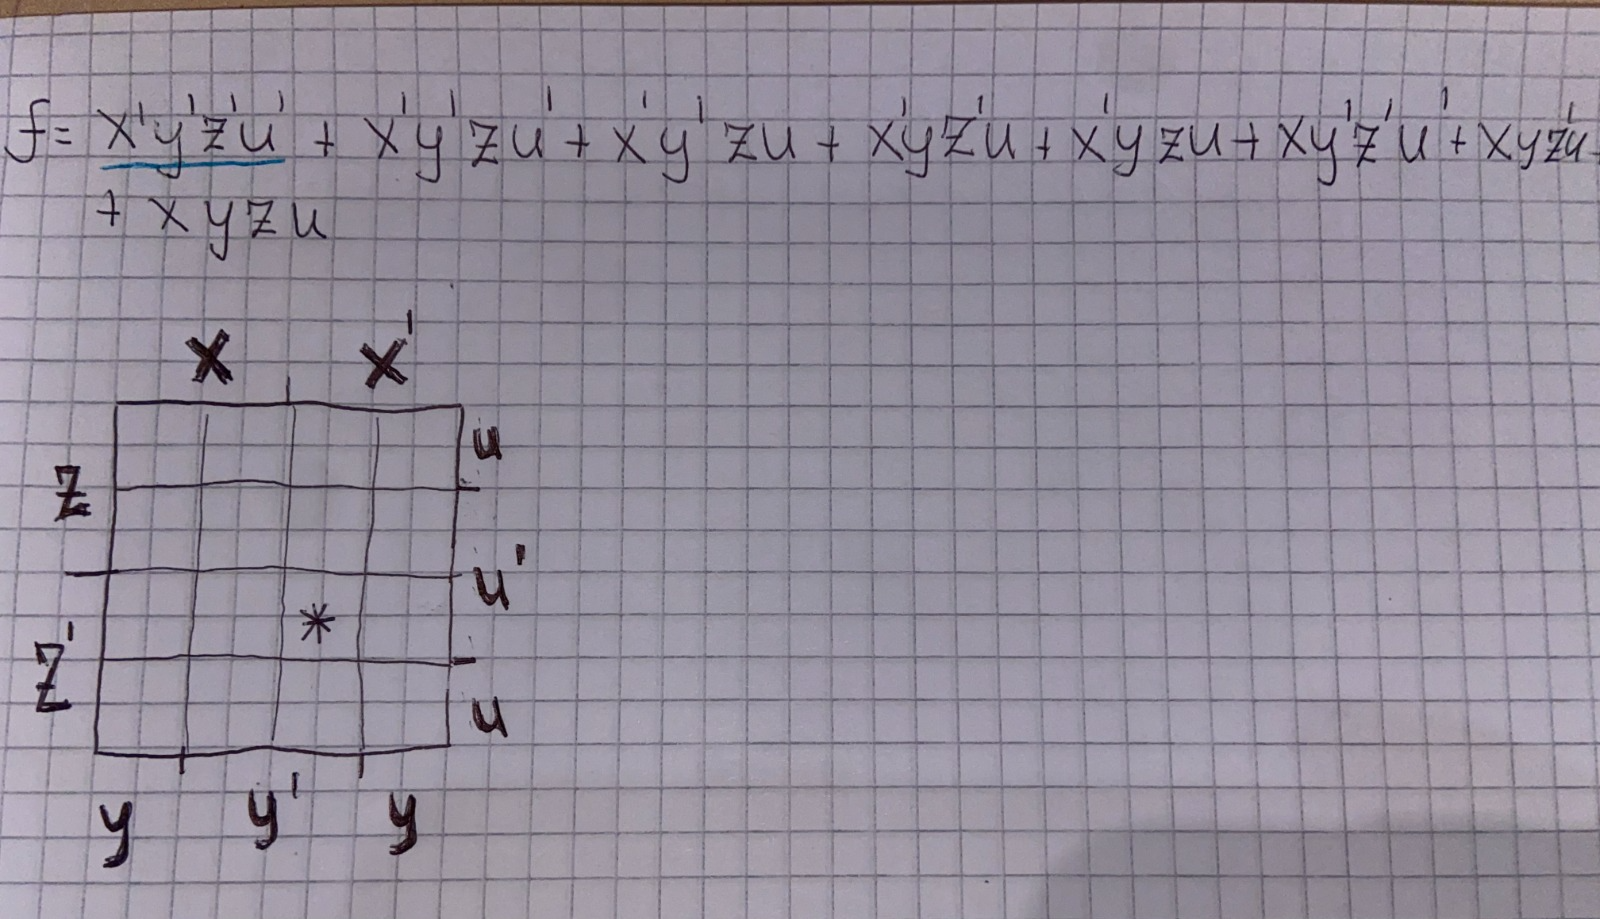 f= x'y'z'u' + x'y'zu' + x'y'zu + x'yz'u + x'yzu + xy'z'u' + xyz'u
+ xyzu
x x'
u
z
u'
*
z'
u
y y' y